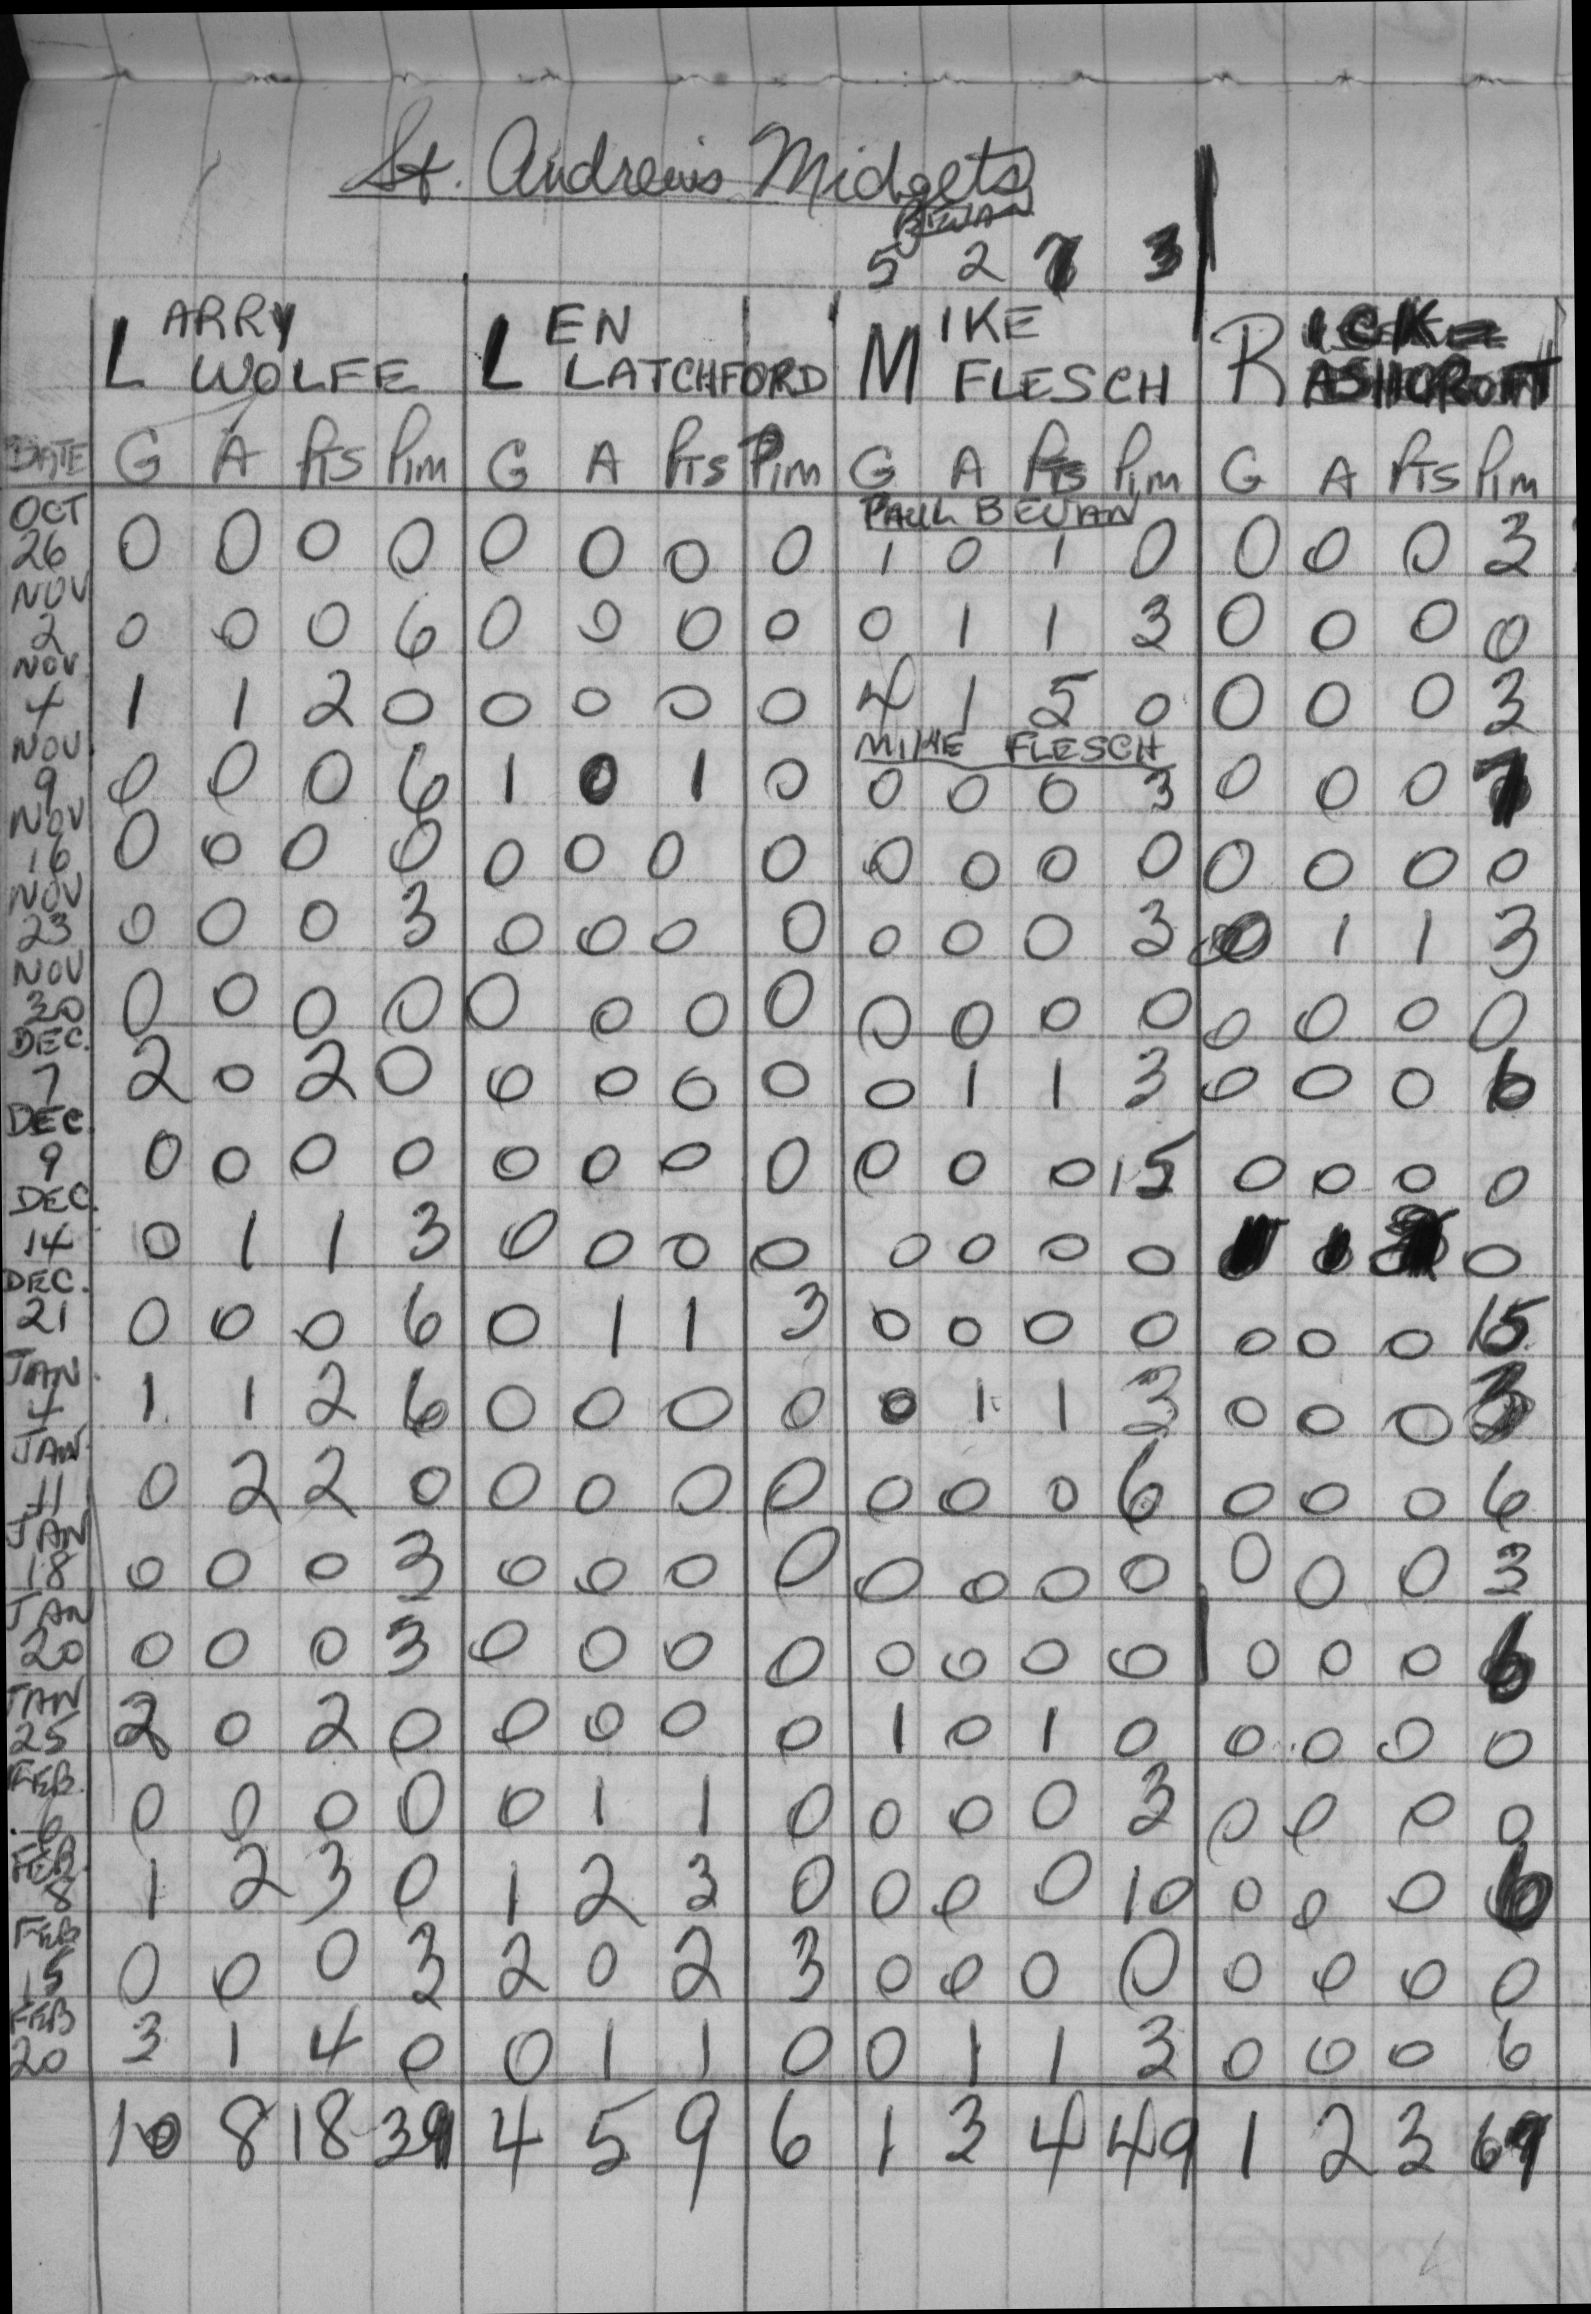 St. Andrew's Midgets
BEVAN
5 2 7 3
LARRY LEN MIKE RICK
WOLFE LATCHFORD FLESCH ASHCROFT
DATE G A PTS PIM G A PTS PIM G A PTS PIM G A PTS PIM
OCT PAUL BEVAN
26 0 0 0 0 0 0 0 0 1 0 1 0 0 0 0 3
NOV
2 0 0 0 6 0 0 0 0 0 1 1 3 0 0 0 0
NOV
4 1 1 2 0 0 0 0 0 4 1 5 0 0 0 0 3
NOV MIKE FLESCH
9 0 0 0 6 1 0 1 0 0 0 0 3 0 0 0 7
NOV
16 0 0 0 0 0 0 0 0 0 0 0 0 0 0 0 0
NOV
23 0 0 0 3 0 0 0 0 0 0 0 3 0 1 1 3
NOV
30 0 0 0 0 0 0 0 0 0 0 0 0 0 0 0 0
DEC.
7 2 0 2 0 0 0 0 0 0 1 1 3 0 0 0 6
DEC.
9 0 0 0 0 0 0 0 0 0 0 0 15 0 0 0 0
DEC.
14 0 1 1 3 0 0 0 0 0 0 0 0 1 1 0
DEC.
21 0 0 0 6 0 1 1 3 0 0 0 0 0 0 0 15
JAN.
4 1 1 2 6 0 0 0 0 0 1 1 3 0 0 0 3
JAN.
11 0 2 2 0 0 0 0 0 0 0 0 6 0 0 0 6
JAN
18 0 0 0 3 0 0 0 0 0 0 0 0 0 0 0 3
JAN
20 0 0 0 3 0 0 0 0 0 0 0 0 0 0 0 6
JAN
25 2 0 2 0 0 0 0 0 1 0 1 0 0 0 0 0
FEB.
6 0 0 0 0 0 1 1 0 0 0 0 3 0 0 0 0
FEB.
8 1 2 3 0 1 2 3 0 0 0 0 10 0 0 0 6
FEB
15 0 0 0 3 2 0 2 3 0 0 0 0 0 0 0 0
FEB
20 3 1 4 0 0 1 1 0 0 1 1 3 0 0 0 6
10 8 18 39 4 5 9 6 1 3 4 49 1 2 3 67